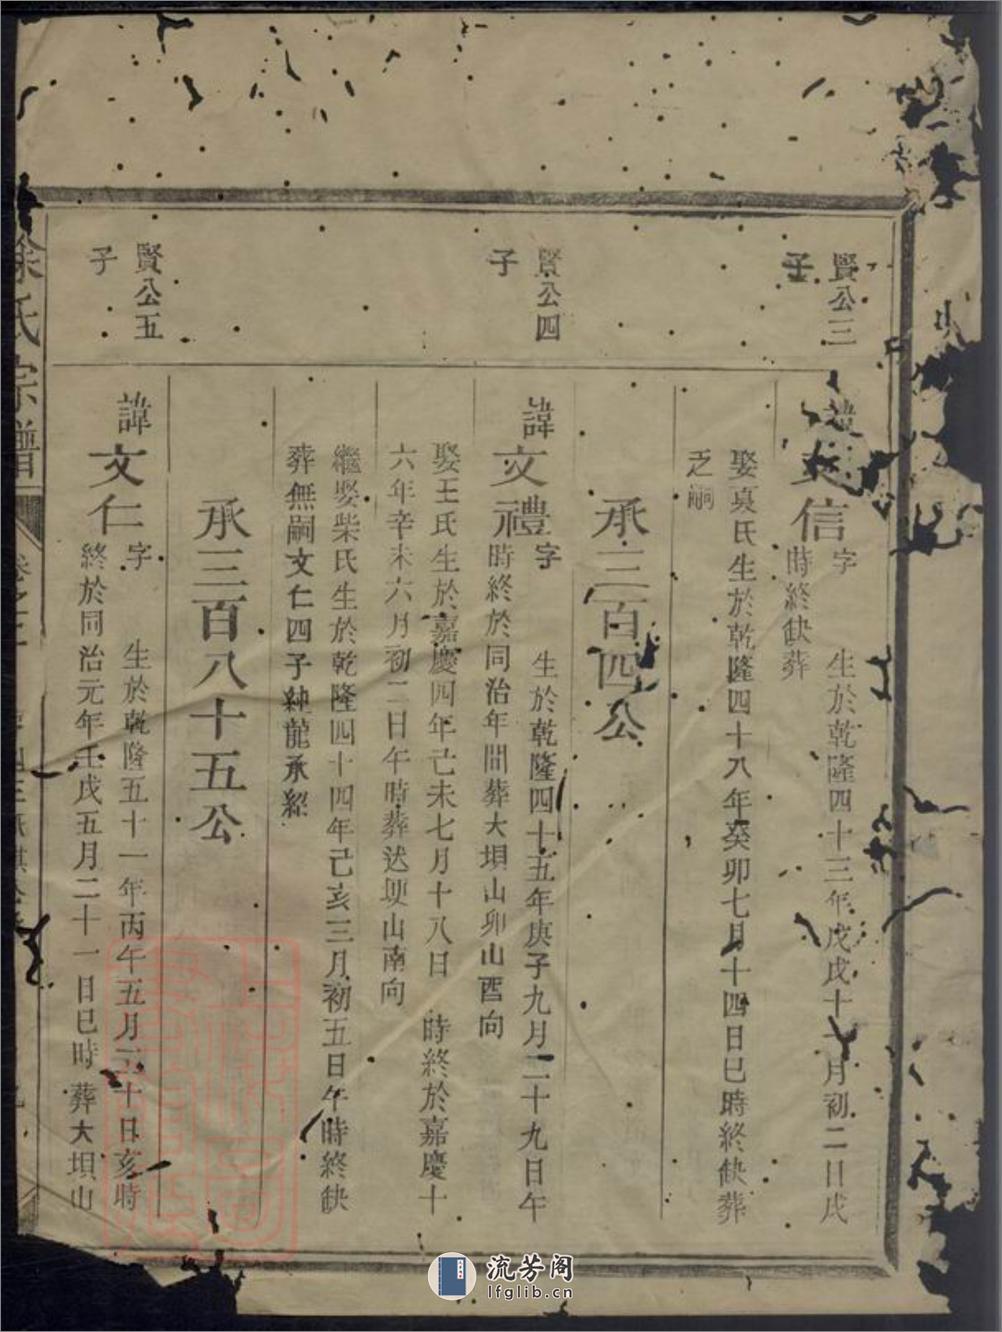 賢公三
子
諱
文信
字　生於乾隆四十三年戊戌十一月初二日戌
時終缺葬
娶袁氏生於乾隆四十八年癸卯七月十四日巳時終缺葬
乏嗣
承三百四公
賢公四
子
諱
文禮
字　生於乾隆四十五年庚子九月二十九日午
時終於同治年間葬大垻山卯山酉向
娶王氏生於嘉慶四年己未七月十八日　時終於嘉慶十
六年辛未六月初二日午時葬送埂山南向
繼娶柴氏生於乾隆四十四年己亥三月初五日午時終缺
葬無嗣文仁四子紳龍承紹
承三百八十五公
賢公五
子
諱
文仁
字　生於乾隆五十一年丙午五月三十日亥時
終於同治元年壬戌五月二十一日巳時葬大垻山
徐氏宗譜
流芳阁
lfglib.cn